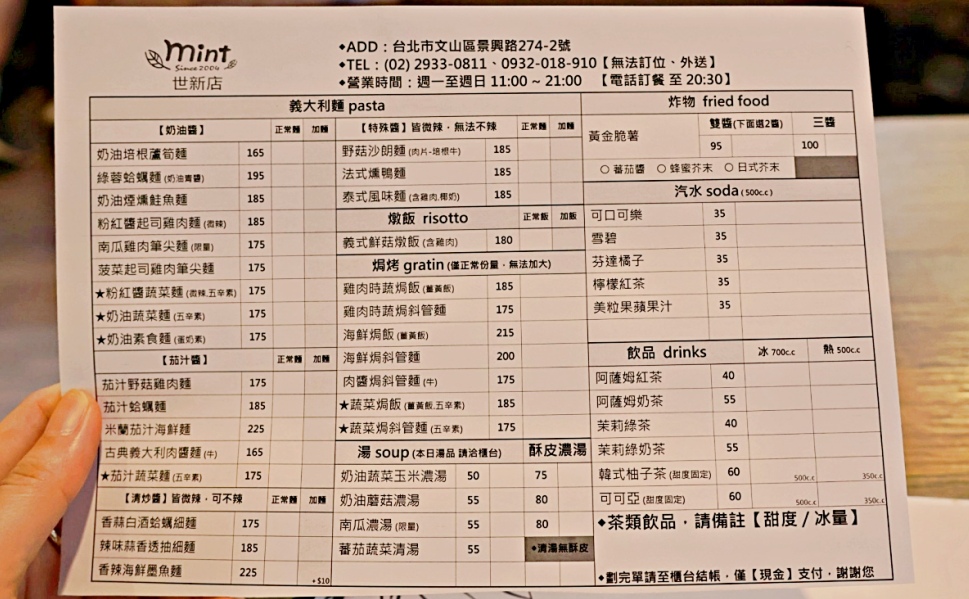 mint
Since 2004
世新店
◆ADD：台北市文山區景興路274-2號
◆TEL：(02) 2933-0811、0932-018-910【無法訂位、外送】
◆營業時間：週一至週日 11:00 ~ 21:00 【電話訂餐 至 20:30】
義大利麵 pasta
【奶油醬】 正常麵 加麵
奶油培根蘆筍麵 165
綠蓉蛤蠣麵 (奶油青醬) 195
奶油煙燻鮭魚麵 185
粉紅醬起司雞肉麵 (微辣) 185
南瓜雞肉筆尖麵 (限量) 175
菠菜起司雞肉筆尖麵 175
★粉紅醬蔬菜麵 (微辣,五辛素) 175
★奶油蔬菜麵 (五辛素) 175
★奶油素食麵 (蛋奶素) 175
【茄汁醬】 正常麵 加麵
茄汁野菇雞肉麵 175
茄汁蛤蠣麵 185
米蘭茄汁海鮮麵 225
古典義大利肉醬麵 (牛) 165
★茄汁蔬菜麵 (五辛素) 175
【清炒醬】皆微辣，可不辣 正常麵 加麵
香蒜白酒蛤蠣細麵 175
辣味蒜香透抽細麵 185
香辣海鮮墨魚麵 225
+$10
【特殊醬】皆微辣，無法不辣 正常麵 加麵
野菇沙朗麵 (肉片-培根牛) 185
法式燻鴨麵 185
泰式風味麵 (含雞肉,椰奶) 185
燉飯 risotto 正常飯 加飯
義式鮮菇燉飯 (含雞肉) 180
焗烤 gratin (僅正常份量，無法加大)
雞肉時蔬焗飯 (薑黃飯) 185
雞肉時蔬焗斜管麵 175
海鮮焗飯 (薑黃飯) 215
海鮮焗斜管麵 200
肉醬焗斜管麵 (牛) 175
★蔬菜焗飯 (薑黃飯,五辛素) 185
★蔬菜焗斜管麵 (五辛素) 175
湯 soup (本日湯品 請洽櫃台) 酥皮濃湯
奶油蔬菜玉米濃湯 50 75
奶油蘑菇濃湯 55 80
南瓜濃湯 (限量) 55 80
蕃茄蔬菜清湯 55 ◆清湯無酥皮
炸物 fried food
黃金脆薯 雙醬(下面選2醬) 三醬
95 100
○ 蕃茄醬 ○ 蜂蜜芥末 ○ 日式芥末
汽水 soda (500c.c)
可口可樂 35
雪碧 35
芬達橘子 35
檸檬紅茶 35
美粒果蘋果汁 35
飲品 drinks 冰 700c.c 熱 500c.c
阿薩姆紅茶 40
阿薩姆奶茶 55
茉莉綠茶 40
茉莉綠奶茶 55
韓式柚子茶 (甜度固定) 60 500c.c 350c.c
可可亞 (甜度固定) 60 500c.c 350c.c
◆茶類飲品，請備註【甜度 / 冰量】
◆劃完單請至櫃台結帳，僅【現金】支付，謝謝您